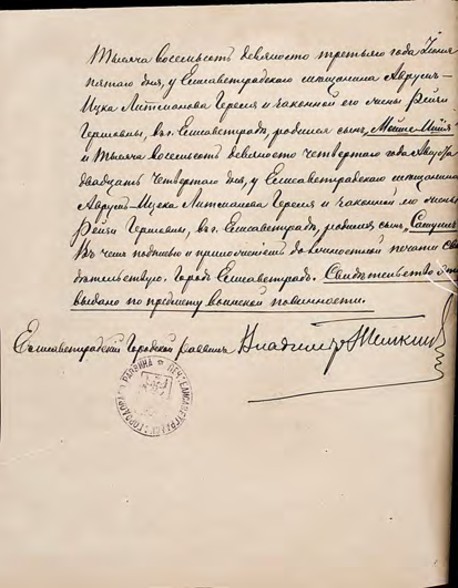 Тысяча восемьсотъ девяносто третьяго года Iюня
пятаго дня, у Елисаветградскаго мѣщанина Аврумъ-
Ицка Литманова Гересъ и законной его жены Рейзи
Гершовны, въ г. Елисаветградѣ, родился сынъ,
и тысяча восемьсотъ девяносто четвертаго года Августа
двадцать четвертаго дня, у Елисаветградскаго мѣщанина
Аврумъ-Ицка Литманова Гересъ и законной его жены
Рейзи Гершовны, въ г. Елисаветградѣ, родился сынъ, Самуилъ
Въ чемъ подписью и приложеніемъ должностной печати сви
дѣтельствую. Городъ Елисаветградъ. Свидѣтельство это
выдано по предмету воинской повинности.
Елисаветградскій Городской раввинъ Владимиръ